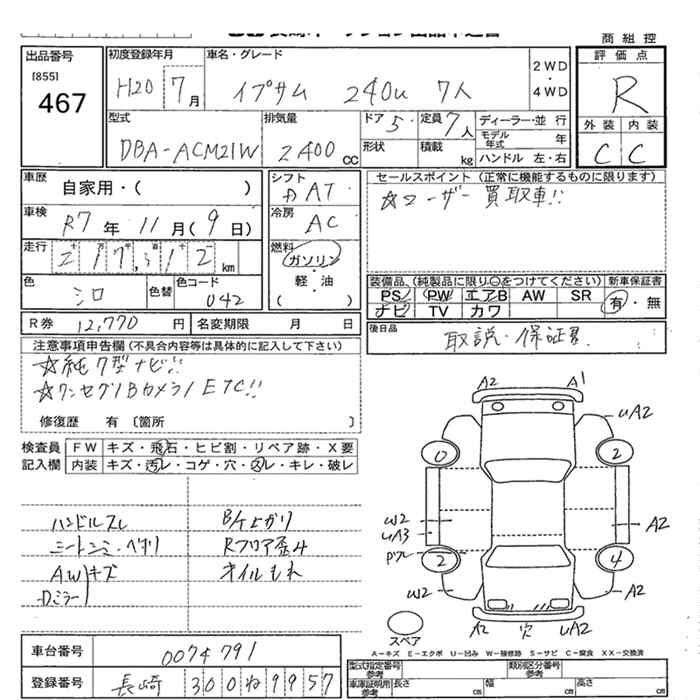 商 組 控
出品番号
[855]
467
初度登録年月
H20 7月
車名・グレード
イプサム 240u 7人
2WD
・
4WD
評 価 点
R
外 装 内 装
C C
型式
DBA-ACM21W
排気量
2400cc
ドア 5
形状
定員 7人
積載 kg
ディーラー・並 行
モデル年式 年
ハンドル 左・右
車歴
自家用・( )
シフト
AT
セールスポイント (正常に機能するものに限ります)
☆ユーザー買取車!!
車検
R7 年 11 月 ( 9 日)
冷房
AC
走行
十 万 千 百 十
217,312 km
燃料
ガソリン
・
軽・油
( )
色
シロ
色替
色コード
042
装備品、(純製品に限り〇をつけてください)
新車保証書
PS PW エアB AW SR
ナビ TV カワ
有・無
R券 12,770 円
名変期限 月 日
後日品
取説・保証書
注意事項申告欄 (不具合内容等は具体的に記入して下さい)
☆純7型ナビ!!
☆ワンセグ/Bカメラ/ETC!!
修復歴 有 〔箇所 〕
検査員
記入欄
FW キズ・飛石・ヒビ割・リペア跡・X要
内装 キズ・汚レ・コゲ・穴・スレ・キレ・破レ
ハンドルスレ
B/ドよがり
シートシミ・ヘタリ
Rフロア歪み
AWキズ
オイルもれ
Dミラー
A2 A1
UA2
0 2
W2
UA3
A2
2 4
W2 A2
A2 穴 UA2
スペア
A-キズ E-エクボ U-凹み W-補修跡 S-サビ C-腐食 XX-交換済
車台番号
0074791
登録番号
長崎 300ね9957
型式指定番号
参考
類別区分番号
参考
車庫証明用
参考
長さ cm
幅 cm
高さ cm